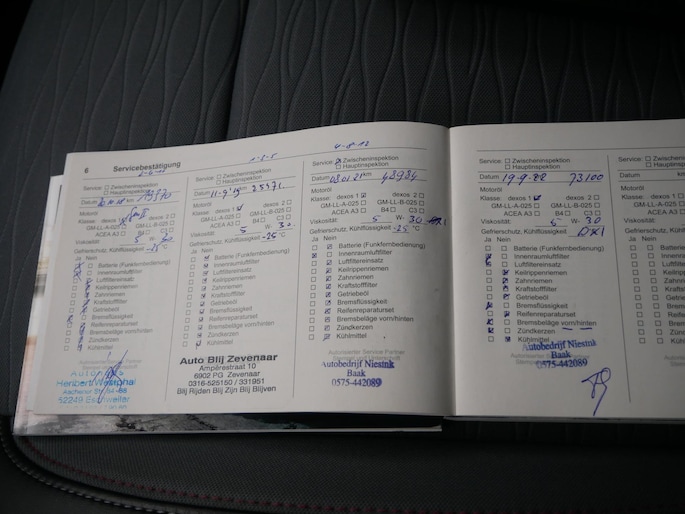 6 Servicebestätigung
Service: Zwischeninspektion
Hauptinspektion
Datum km
Motoröl
Klasse: dexos 1 dexos 2
GM-LL-A-025 GM-LL-B-025
ACEA A3 B4 C3
Viskosität: 5 W- 30
Gefrierschutz, Kühlflüssigkeit -25 °C
Ja Nein
Batterie (Funkfernbedienung)
Innenraumluftfilter
Luftfiltereinsatz
Keilrippenriemen
Zahnriemen
Kraftstofffilter
Getriebeöl
Bremsflüssigkeit
Reifenreparaturset
Bremsbeläge vorn/hinten
Zündkerzen
Kühlmittel
Heribert Westphal
52249 Eschweiler
Service: Zwischeninspektion
Hauptinspektion
Datum 11-9'19 km 25571
Motoröl
Klasse: dexos 1 dexos 2
GM-LL-A-025 GM-LL-B-025
ACEA A3 B4 C3
Viskosität: 5 W- 30
Gefrierschutz, Kühlflüssigkeit -25 °C
Ja Nein
Batterie (Funkfernbedienung)
Innenraumluftfilter
Luftfiltereinsatz
Keilrippenriemen
Zahnriemen
Kraftstofffilter
Getriebeöl
Bremsflüssigkeit
Reifenreparaturset
Bremsbeläge vorn/hinten
Zündkerzen
Kühlmittel
Auto Blij Zevenaar
Ampèrestraat 10
6902 PG Zevenaar
0316-525150 / 331951
Blij Rijden Blij Zijn Blij Blijven
Service: Zwischeninspektion
Hauptinspektion
Datum km 42984
Motoröl
Klasse: dexos 1 dexos 2
GM-LL-A-025 GM-LL-B-025
ACEA A3 B4 C3
Viskosität: 5 W- 30
Gefrierschutz, Kühlflüssigkeit -25 °C
Ja Nein
Batterie (Funkfernbedienung)
Innenraumluftfilter
Luftfiltereinsatz
Keilrippenriemen
Zahnriemen
Kraftstofffilter
Getriebeöl
Bremsflüssigkeit
Reifenreparaturset
Bremsbeläge vorn/hinten
Zündkerzen
Kühlmittel
Autorisierter Service Partner
Autobedrijf Niesink
Baak
0575-442089
Service: Zwischeninspektion
Hauptinspektion
Datum 19-9-22 73100
Motoröl
Klasse: dexos 1 dexos 2
GM-LL-A-025 GM-LL-B-025
ACEA A3 B4 C3
Viskosität: 5 W- 30
Gefrierschutz, Kühlflüssigkeit
Ja Nein
Batterie (Funkfernbedienung)
Innenraumluftfilter
Luftfiltereinsatz
Keilrippenriemen
Zahnriemen
Kraftstofffilter
Getriebeöl
Bremsflüssigkeit
Reifenreparaturset
Bremsbeläge vorn/hinten
Zündkerzen
Kühlmittel
Autorisierter Service Partner
Autobedrijf Niesink
Baak
0575-442089
Service:
Datum
Motoröl
Klasse:
Viskosität:
Gefrierschutz
Ja Nein